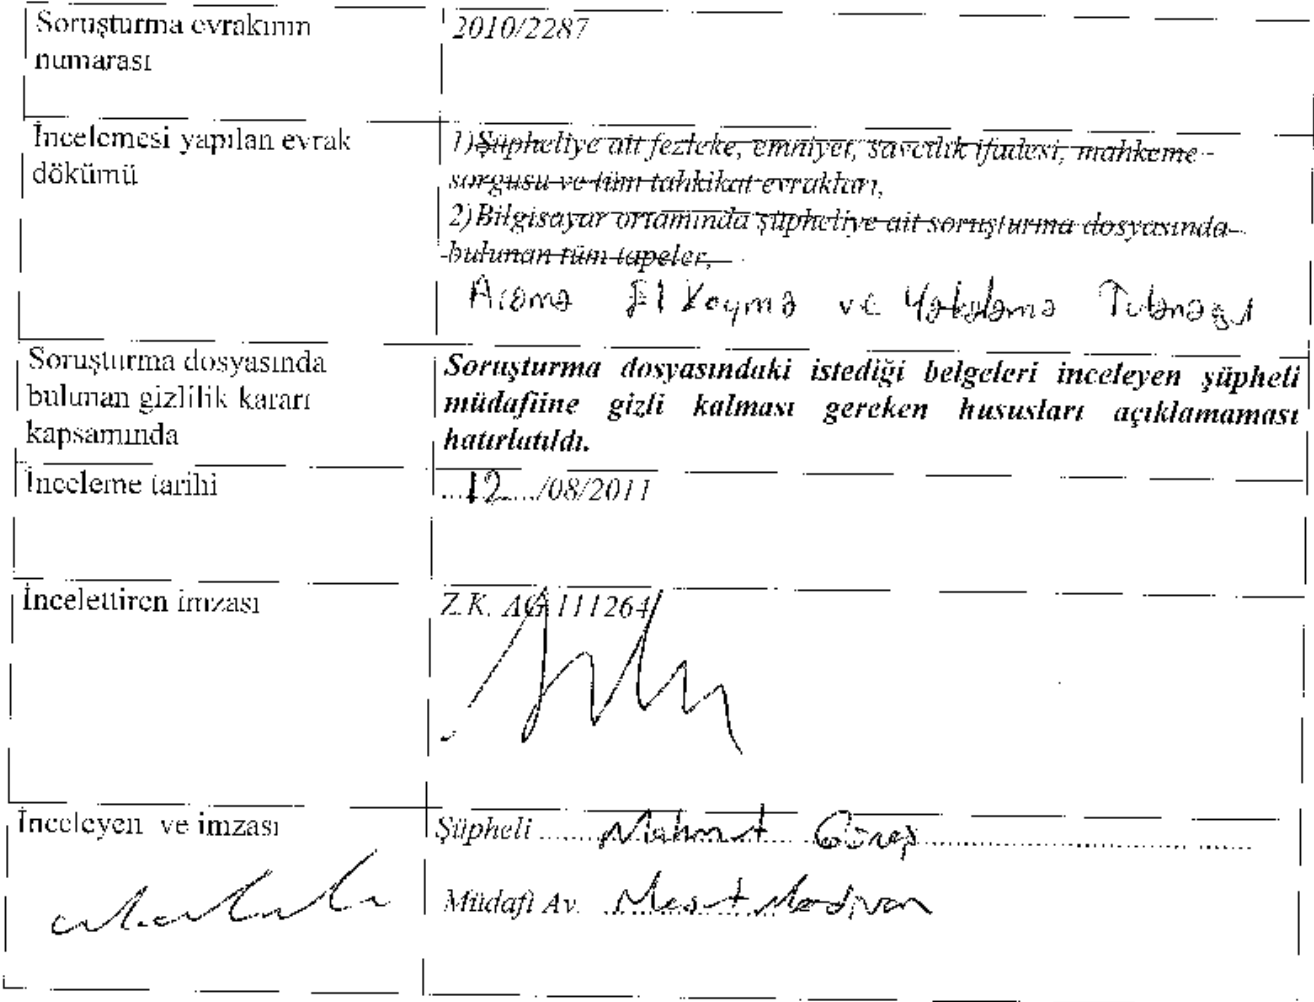 Soruşturma evrakının
numarası
2010/2287
İncelemesi yapılan evrak
dökümü
1)Şüpheliye ait fezleke, emniyet, savcılık ifadesi, mahkeme
sorgusu ve tüm tahkikat evrakları,
2)Bilgisayar ortamında şüpheliye ait soruşturma dosyasında
bulunan tüm tapeler,
El Koyma ve Yakalama Tutanağı
Soruşturma dosyasında
bulunan gizlilik kararı
kapsamında
Soruşturma dosyasındaki istediği belgeleri inceleyen şüpheli
müdafiine gizli kalması gereken hususları açıklamaması
hatırlatıldı.
İnceleme tarihi
....12..../08/2011
İncelettiren imzası
Z.K. AG 111264
İnceleyen ve imzası
Şüpheli ........Mahmut Güneş........
Müdafi Av. Mesut